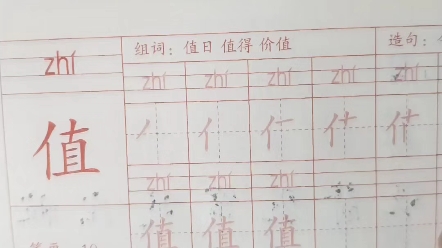 zhí 组词：值日 值得 价值 造句：
zhí zhí zhí zhí zhí
值
zhí zhí zhí
值 值 值